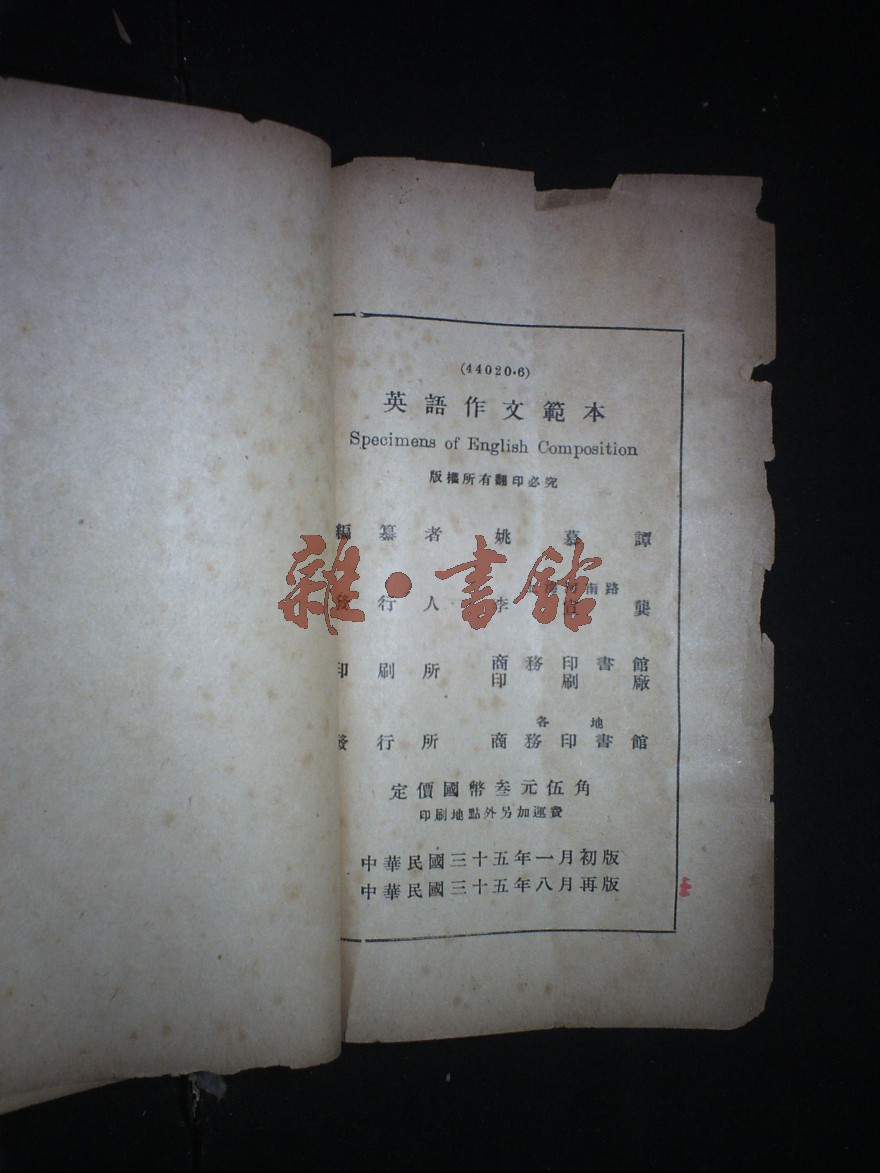 (44020·6)
英語作文範本
Specimens of English Composition
版權所有翻印必究
編纂者 姚慕譚
河南路
發行人 李宣龔
印刷所 商務印書館
印刷廠
各地
發行所 商務印書館
定價國幣叁元伍角
印刷地點外另加運費
中華民國三十五年一月初版
中華民國三十五年八月再版
雜·書館